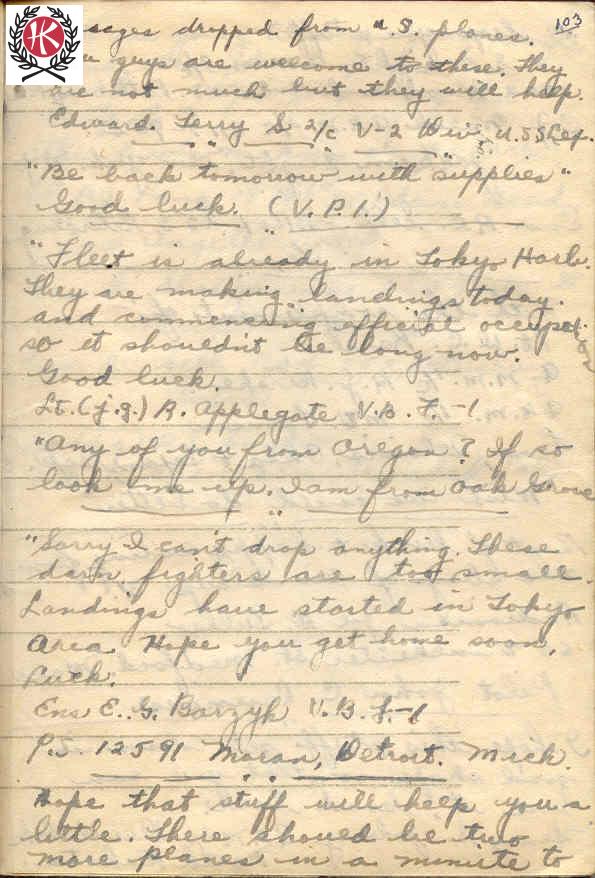 103
sages dropped from U.S. planes.
guys are welcome to these. They
are not much but they will help.
Edward. Terry S 2/c V-2 Div. U.S.S Lex.
"Be back tomorrow with supplies"
Good luck. (V.P.1.)
"Fleet is already in Tokyo Harb.
They are making landings today.
and commencing official occupation
so it shouldn't be long now.
Good luck.
Lt. (j.g.) R. Applegate V.B.F.-1
"Any of you from Oregon? If so
look me up. I am from Oak Grove
"Sorry I can't drop anything. These
darn fighters are too small.
Landings have started in Tokyo
area. Hope you get home soon,
Luck.
Ens E. G. Barzyk V.B.F.-1
P.S. 12591 Moran, Detroit. Mich.
Hope that stuff will help you a
little. There should be two
more planes in a minute to